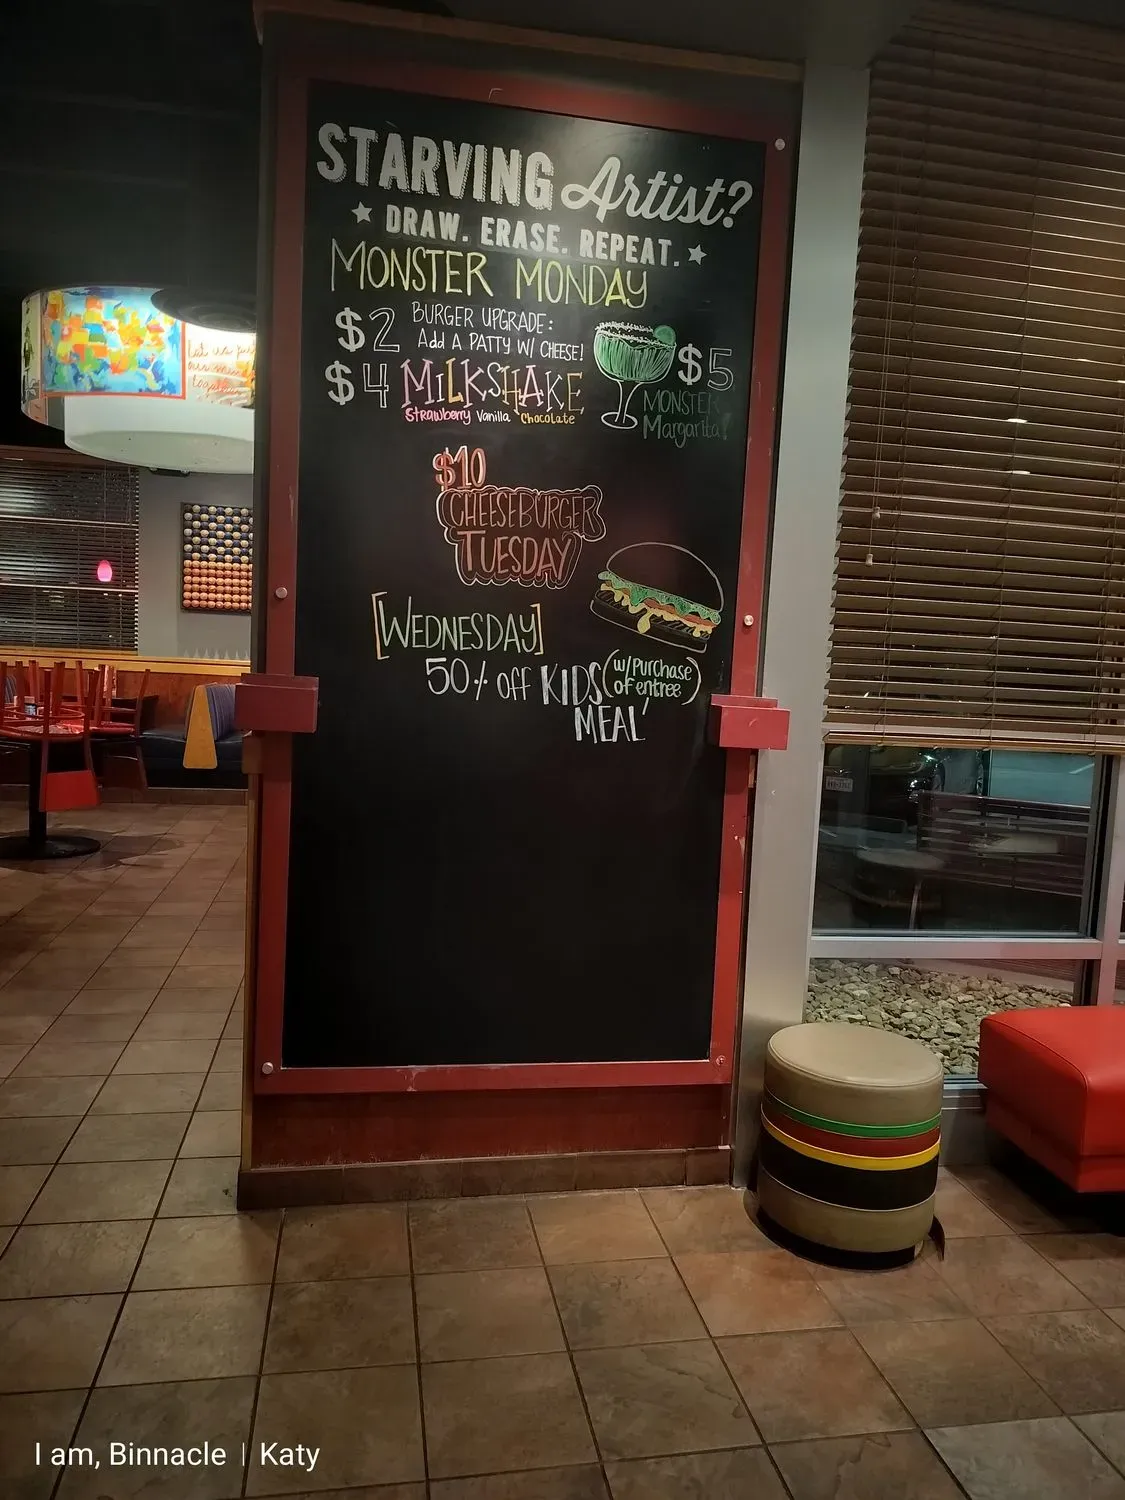 STARVING Artist?
DRAW. ERASE. REPEAT.
MONSTER MONDAY
$2 BURGER UPGRADE:
Add A PATTY W/ CHEESE!
$4 MILKSHAKE
Strawberry Vanilla Chocolate
$5
MONSTER
Margarita!
$10
CHEESEBURGER
TUESDAY
[WEDNESDAY]
50% off KIDS MEAL
(w/Purchase
of entree)
Let us
our
together
I am, Binnacle | Katy